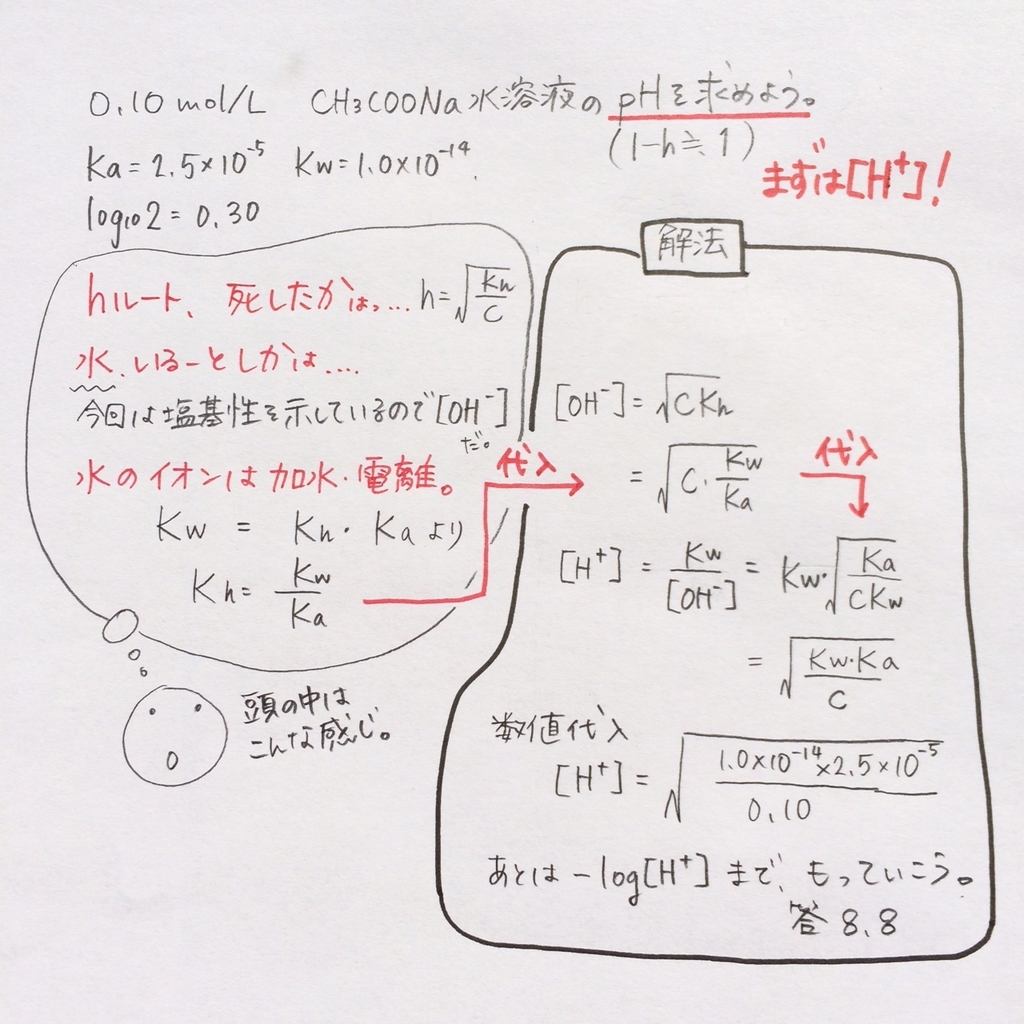 0.10 mol/L CH3COONa水溶液のpHを求めよう。
(1-h≒1)
Ka=2.5×10⁻⁵ Kw=1.0×10⁻¹⁴
log₁₀2=0.30
まずは[H⁺]!
hルート、死したかはっ... h=√(Kh/C)
水、いるーとしかは....
今回は塩基性を示しているので[OH⁻]
だ。
水のイオンは加水・電離。
Kw = Kh・Kaより
Kh= Kw/Ka
代入
頭の中は
こんな感じ。
解法
[OH⁻]=√CKh
=√(C・Kw/Ka)
代入
[H⁺] = Kw/[OH⁻] = Kw・√(Ka/CKw)
=√(Kw・Ka/C)
数値代入
[H⁺]=√(1.0×10⁻¹⁴×2.5×10⁻⁵/0.10)
あとは-log[H⁺]まで、もっていこう。
答 8.8